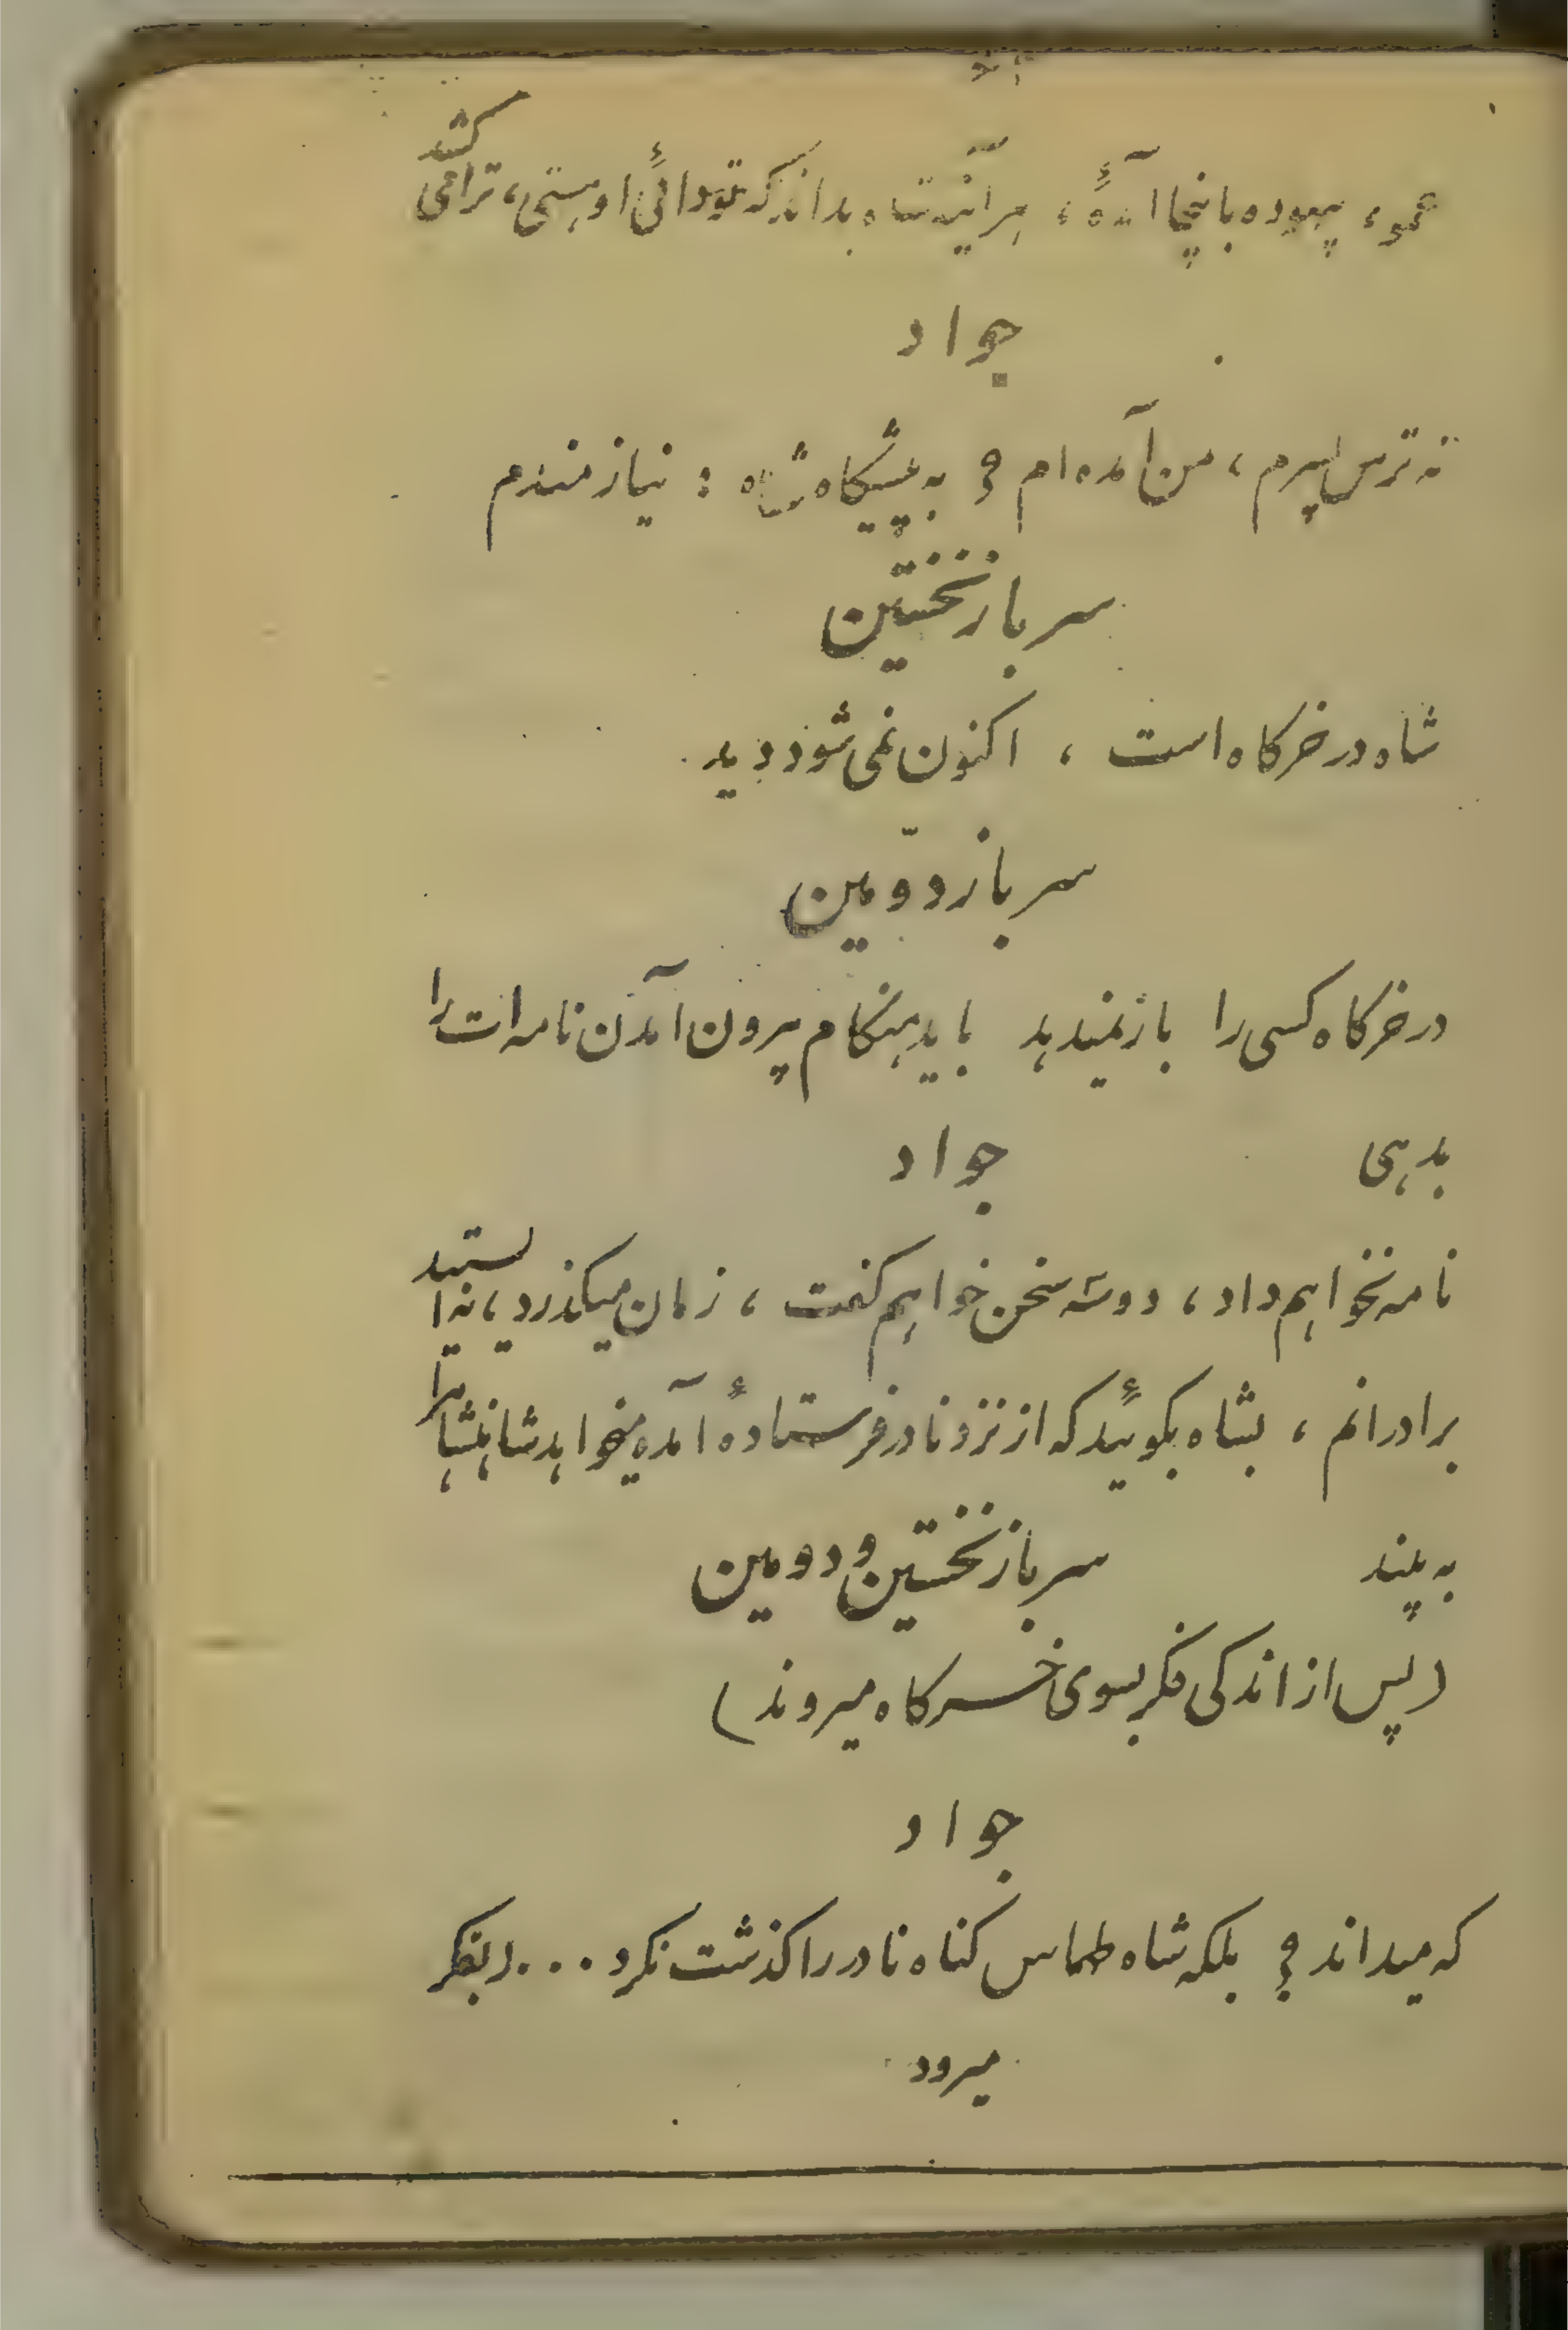 عمو، بیهوده باینجا آمدهٔ، هرآئینه شاه بداند که تو دائی او هستی، ترا می کشد
جواد
نه ترس پسرم، من آمده ام و به پیشگاه شاه : نیازمندم
سرباز نخستین
شاه در خرکاه است ، اکنون نمی شود دید.
سرباز دوّمین
در خرکاه کسی را بار نمیدهد باید هنکام بیرون آمدن نامه ات را
بدهی
جواد
نامه نخواهم داد، دوسه سخن خواهم کفت ، زمان میکذرد، نه ایستید
برادرانم ، بشاه بکوئید که از نزد نادر فرستادهٔ آمده میخواهد شاهنشاه را
به بیند
سرباز نخستین و دومین
(پس از اندکی فکر بسوی خرکاه میروند)
جواد
که میداند ؟ بلکه شاه طهماس کناه نادر را کذشت نکرد . . . (بفکر
میرود.